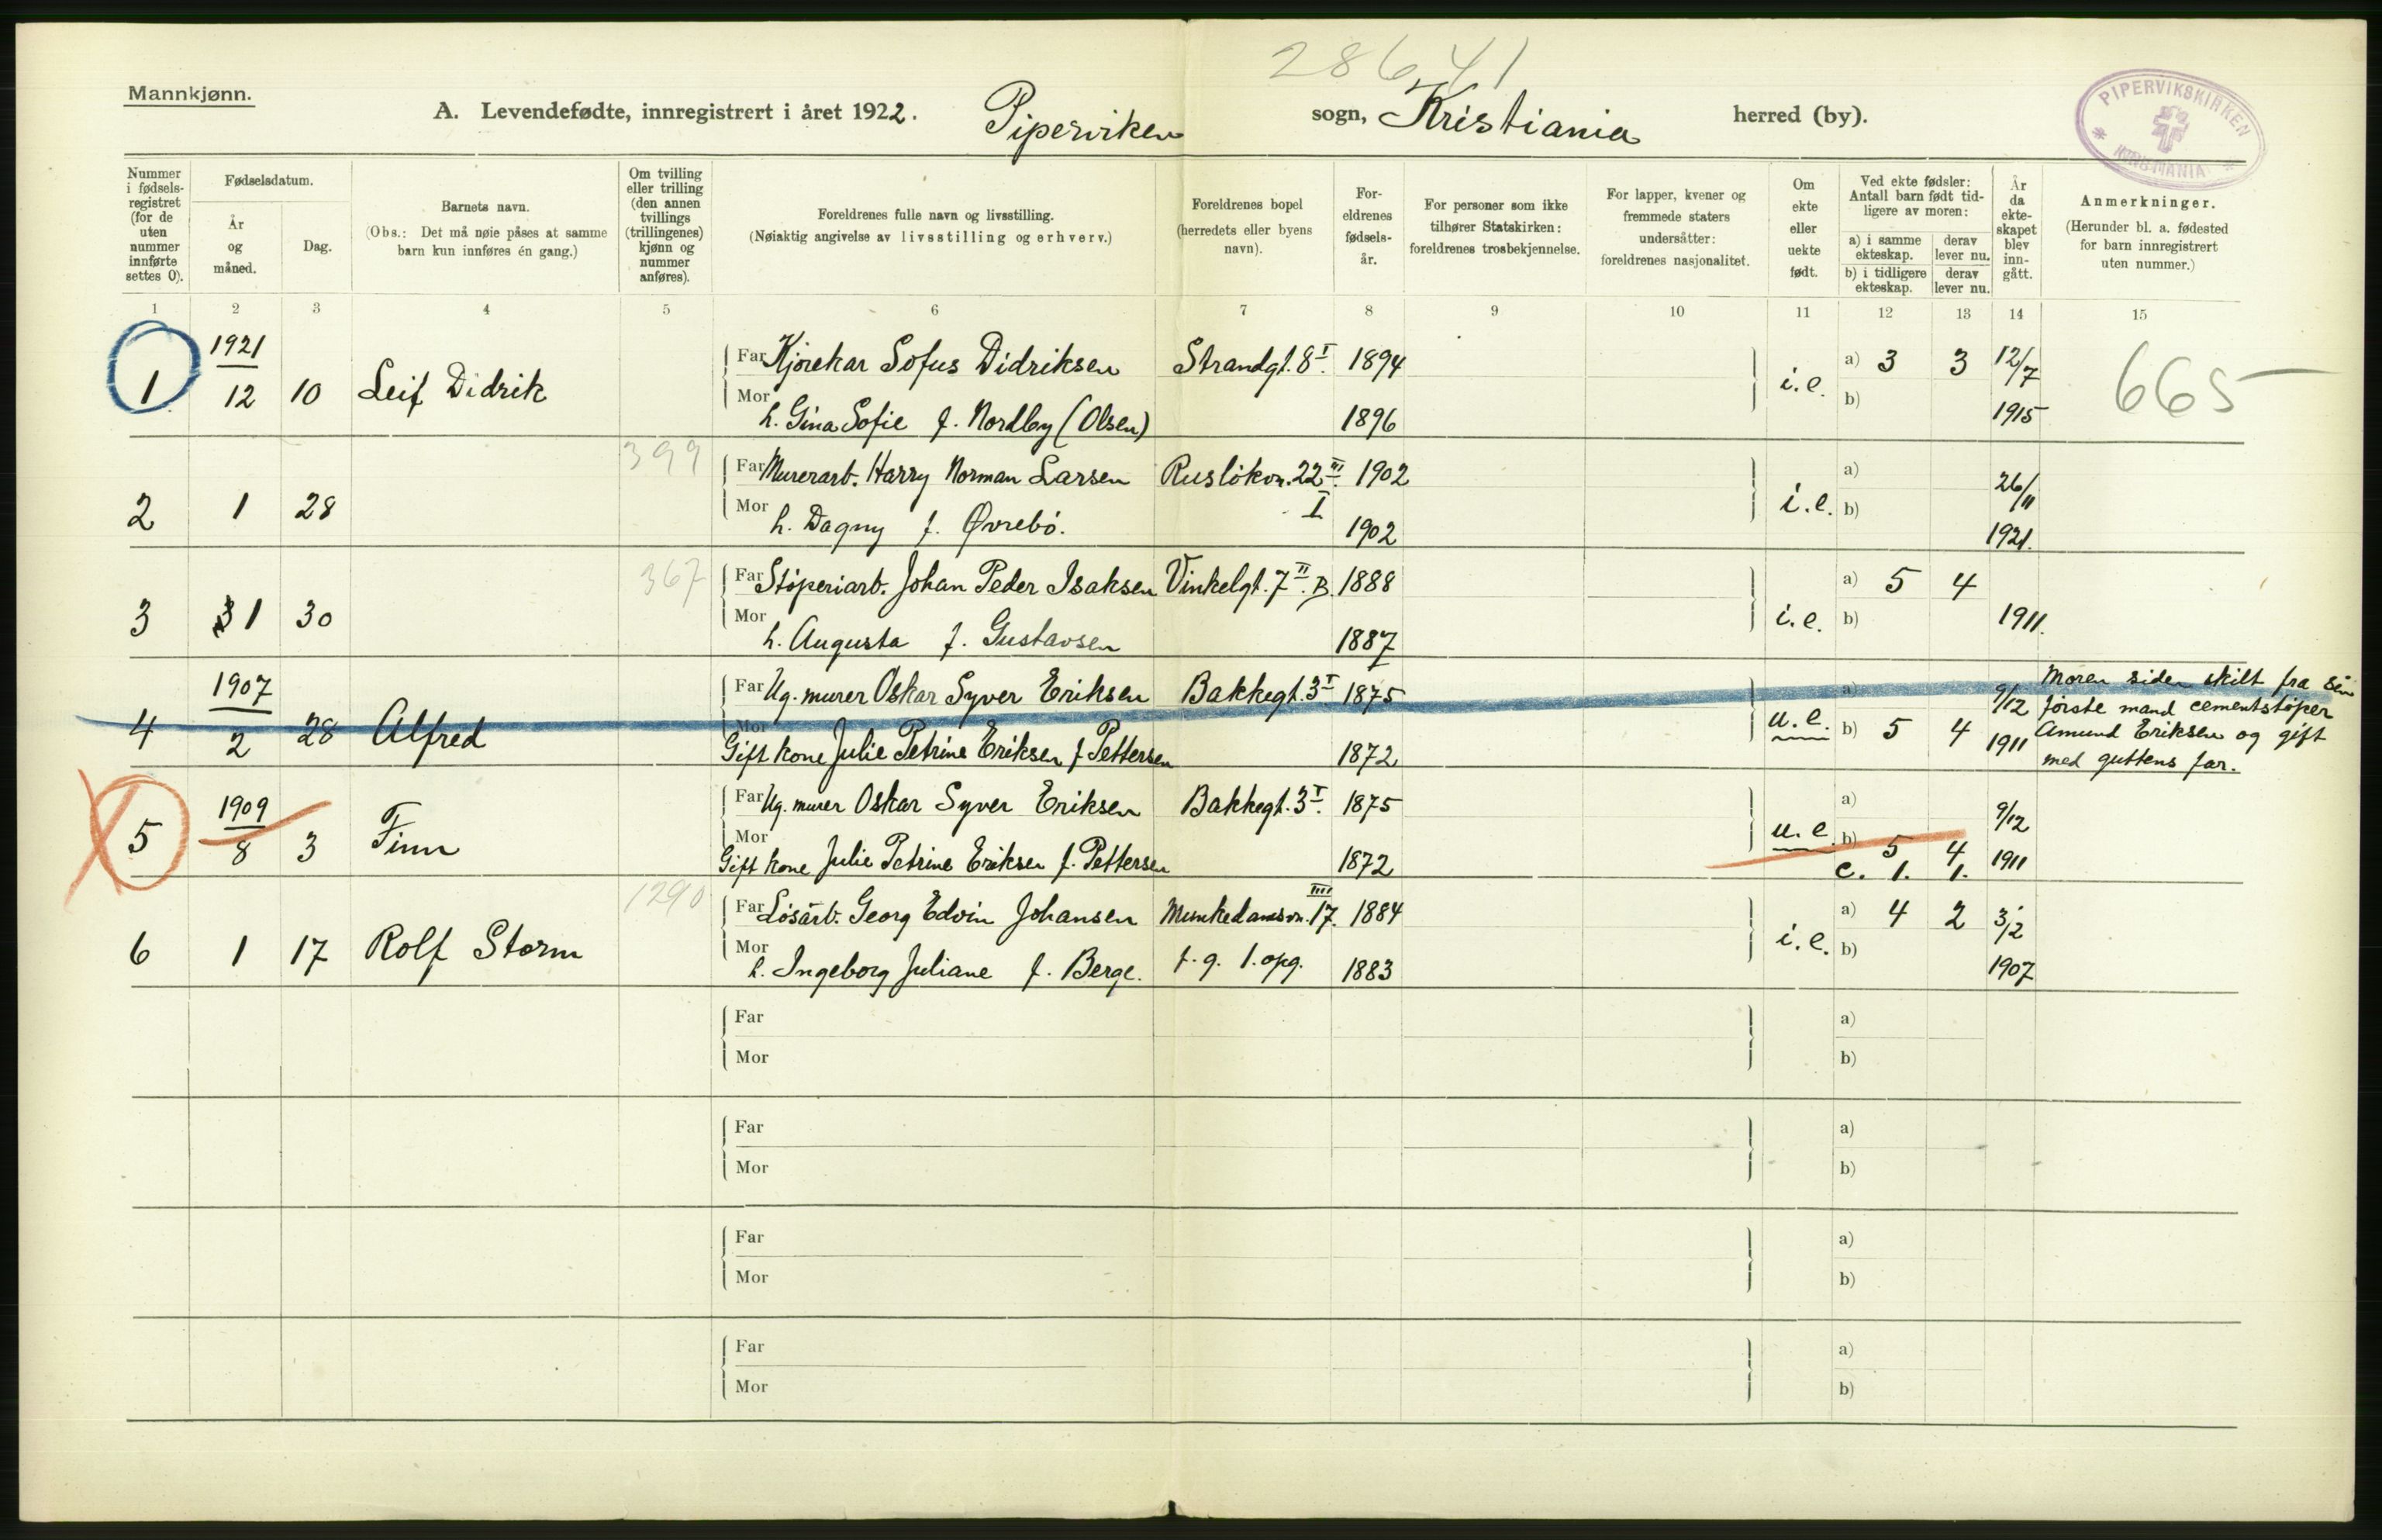 28641
Mannkjønn.
A. Levendefødte, innregistrert i året 1922. Piperviken sogn, Kristiania herred (by).
PIPERVIKSKIRKEN
* KRISTIANIA *
Nummer i fødsels-registret (for de uten nummer innførte settes 0).
Fødselsdatum.
År og måned.
Dag.
Barnets navn.
(Obs.: Det må nøie påses at samme barn kun innføres én gang.)
Om tvilling eller trilling (den annen tvillings (trillingenes) kjønn og nummer anføres).
Foreldrenes fulle navn og livsstilling.
(Nøiaktig angivelse av livsstilling og erhverv.)
Foreldrenes bopel (herredets eller byens navn).
For-eldrenes fødsels-år.
For personer som ikke tilhører Statskirken: foreldrenes trosbekjennelse.
For lapper, kvener og fremmede staters undersåtter: foreldrenes nasjonalitet.
Om ekte eller uekte født.
Ved ekte fødsler: Antall barn født tid-ligere av moren:
a) i samme ekteskap.
derav lever nu.
b) i tidligere ekteskap.
derav lever nu.
År da ekte-skapet blev inn-gått.
Anmerkninger.
(Herunder bl. a. fødested for barn innregistrert uten nummer.)
1 2 3 4 5 6 7 8 9 10 11 12 13 14 15
1921
Far Kjørekar Sofus Didriksen Strandgt. 8 I. 1894 a) 3 3 12/7
1 12 10 Leif Didrik i.e. 665
Mor h. Gina Sofie f. Nordby (Olsen) 1896 b) 1915
399
Far Murerarb. Harry Norman Larsen Rusløkvn. 22 III. 1902 a) 26/11
2 1 28 I i.e.
Mor h. Dagny f. Øvrebø. 1902 b) 1921.
367
Far Støperiarb. Johan Peder Isaksen Vinkelgt. 7 II. B. 1888 a) 5 4
3 1 30 i.e. 1911.
Mor h. Augusta f. Gustavsen 1887 b)
1907
Far Ug. murer Oskar Syver Eriksen Bakkegt. 3 I 1875 a) 9/12
4 2 28 Alfred u.e. b) 5 4 1911
Mor Gift kone Julie Petrine Eriksen f Pettersen 1872
Moren siden skilt fra sin
første mand cementstøper
Amund Eriksen og gift
med guttens far.
1909
Far Ug. murer Oskar Syver Eriksen Bakkegt. 3 I. 1875 a) 9/12
5 8 3 Finn u.e. b) 5 4
Mor Gift kone Julie Petrine Eriksen f. Pettersen 1872 c. 1. 1. 1911
1290
Far Løsarb. Georg Edvin Johansen Munkedamsvn. 17. IIII 1884 a) 4 2 3/2
6 1 17 Rolf Storm i.e.
Mor h. Ingeborg Juliane f. Berge. f. g. 1. opg. 1883 b) 1907
Far a)
Mor b)
Far a)
Mor b)
Far a)
Mor b)
Far a)
Mor b)